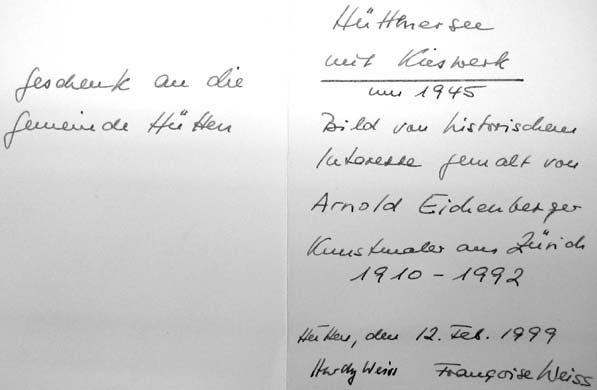 Geschenk an die
Gemeinde Hütten
Hüttnersee
mit Kieswerk
um 1945
Bild von historischem
Interesse gemalt von
Arnold Eichenberger
Kunstmaler aus Zürich
1910 - 1992
Hütten, den 12. Feb. 1999
Hardy Weiss Françoise Weiss